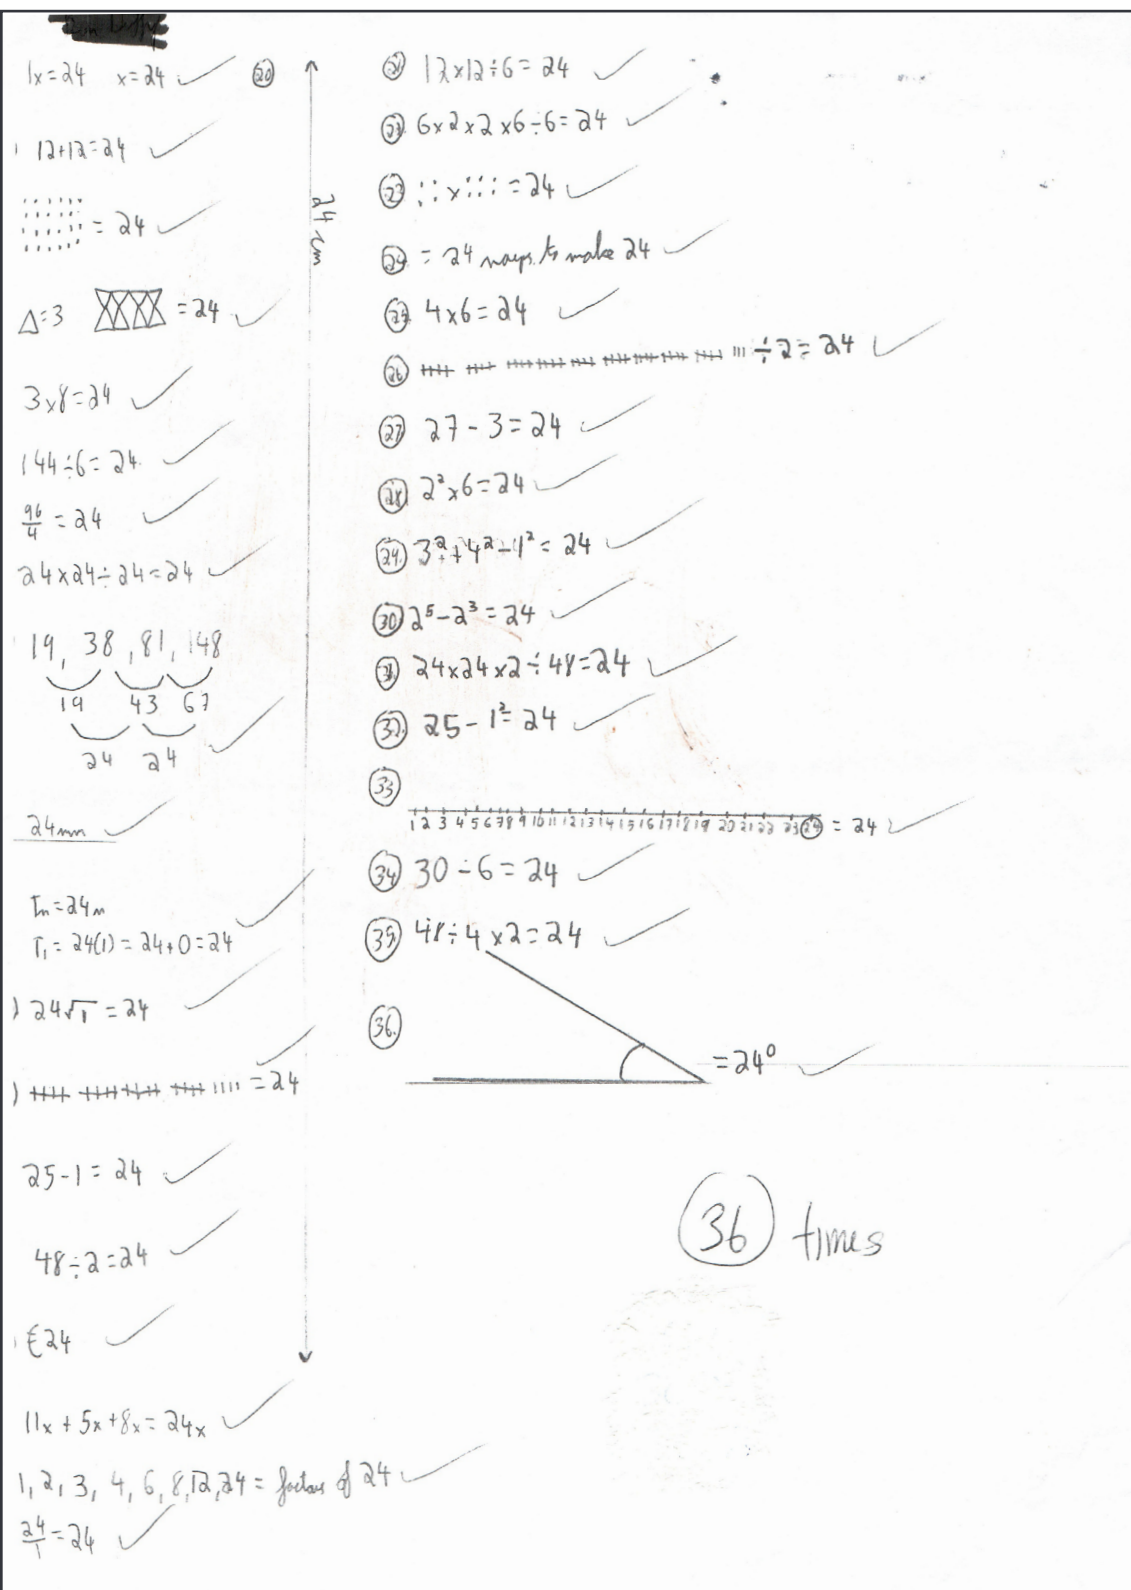 1x=24 x=24
12+12=24
= 24
△=3 = 24
3×8=24
144÷6=24
96/4 = 24
24×24÷24=24
19, 38, 81, 148
19 43 67
24 24
24mm
Tn=24n
T1 = 24(1) = 24+0=24
24√1 = 24
= 24
25-1=24
48÷2=24
€24
11x + 5x + 8x = 24x
1, 2, 3, 4, 6, 8, 12, 24 = factors of 24
24/1 = 24
20
24 cm
21 12×12÷6=24
22. 6×2×2×6÷6=24
23 :: × ::: = 24
24 = 24 ways to make 24
25 4×6=24
26 ÷2=24
27 27-3=24
28. 2²×6=24
29. 3²+4²-1²=24
30 2⁵-2³=24
31. 24×24×2÷48=24
32. 25-1²=24
33
1 2 3 4 5 6 7 8 9 10 11 12 13 14 15 16 17 18 19 20 21 22 23 24 = 24
34 30-6=24
35. 48÷4×2=24
36.
=24°
36 times